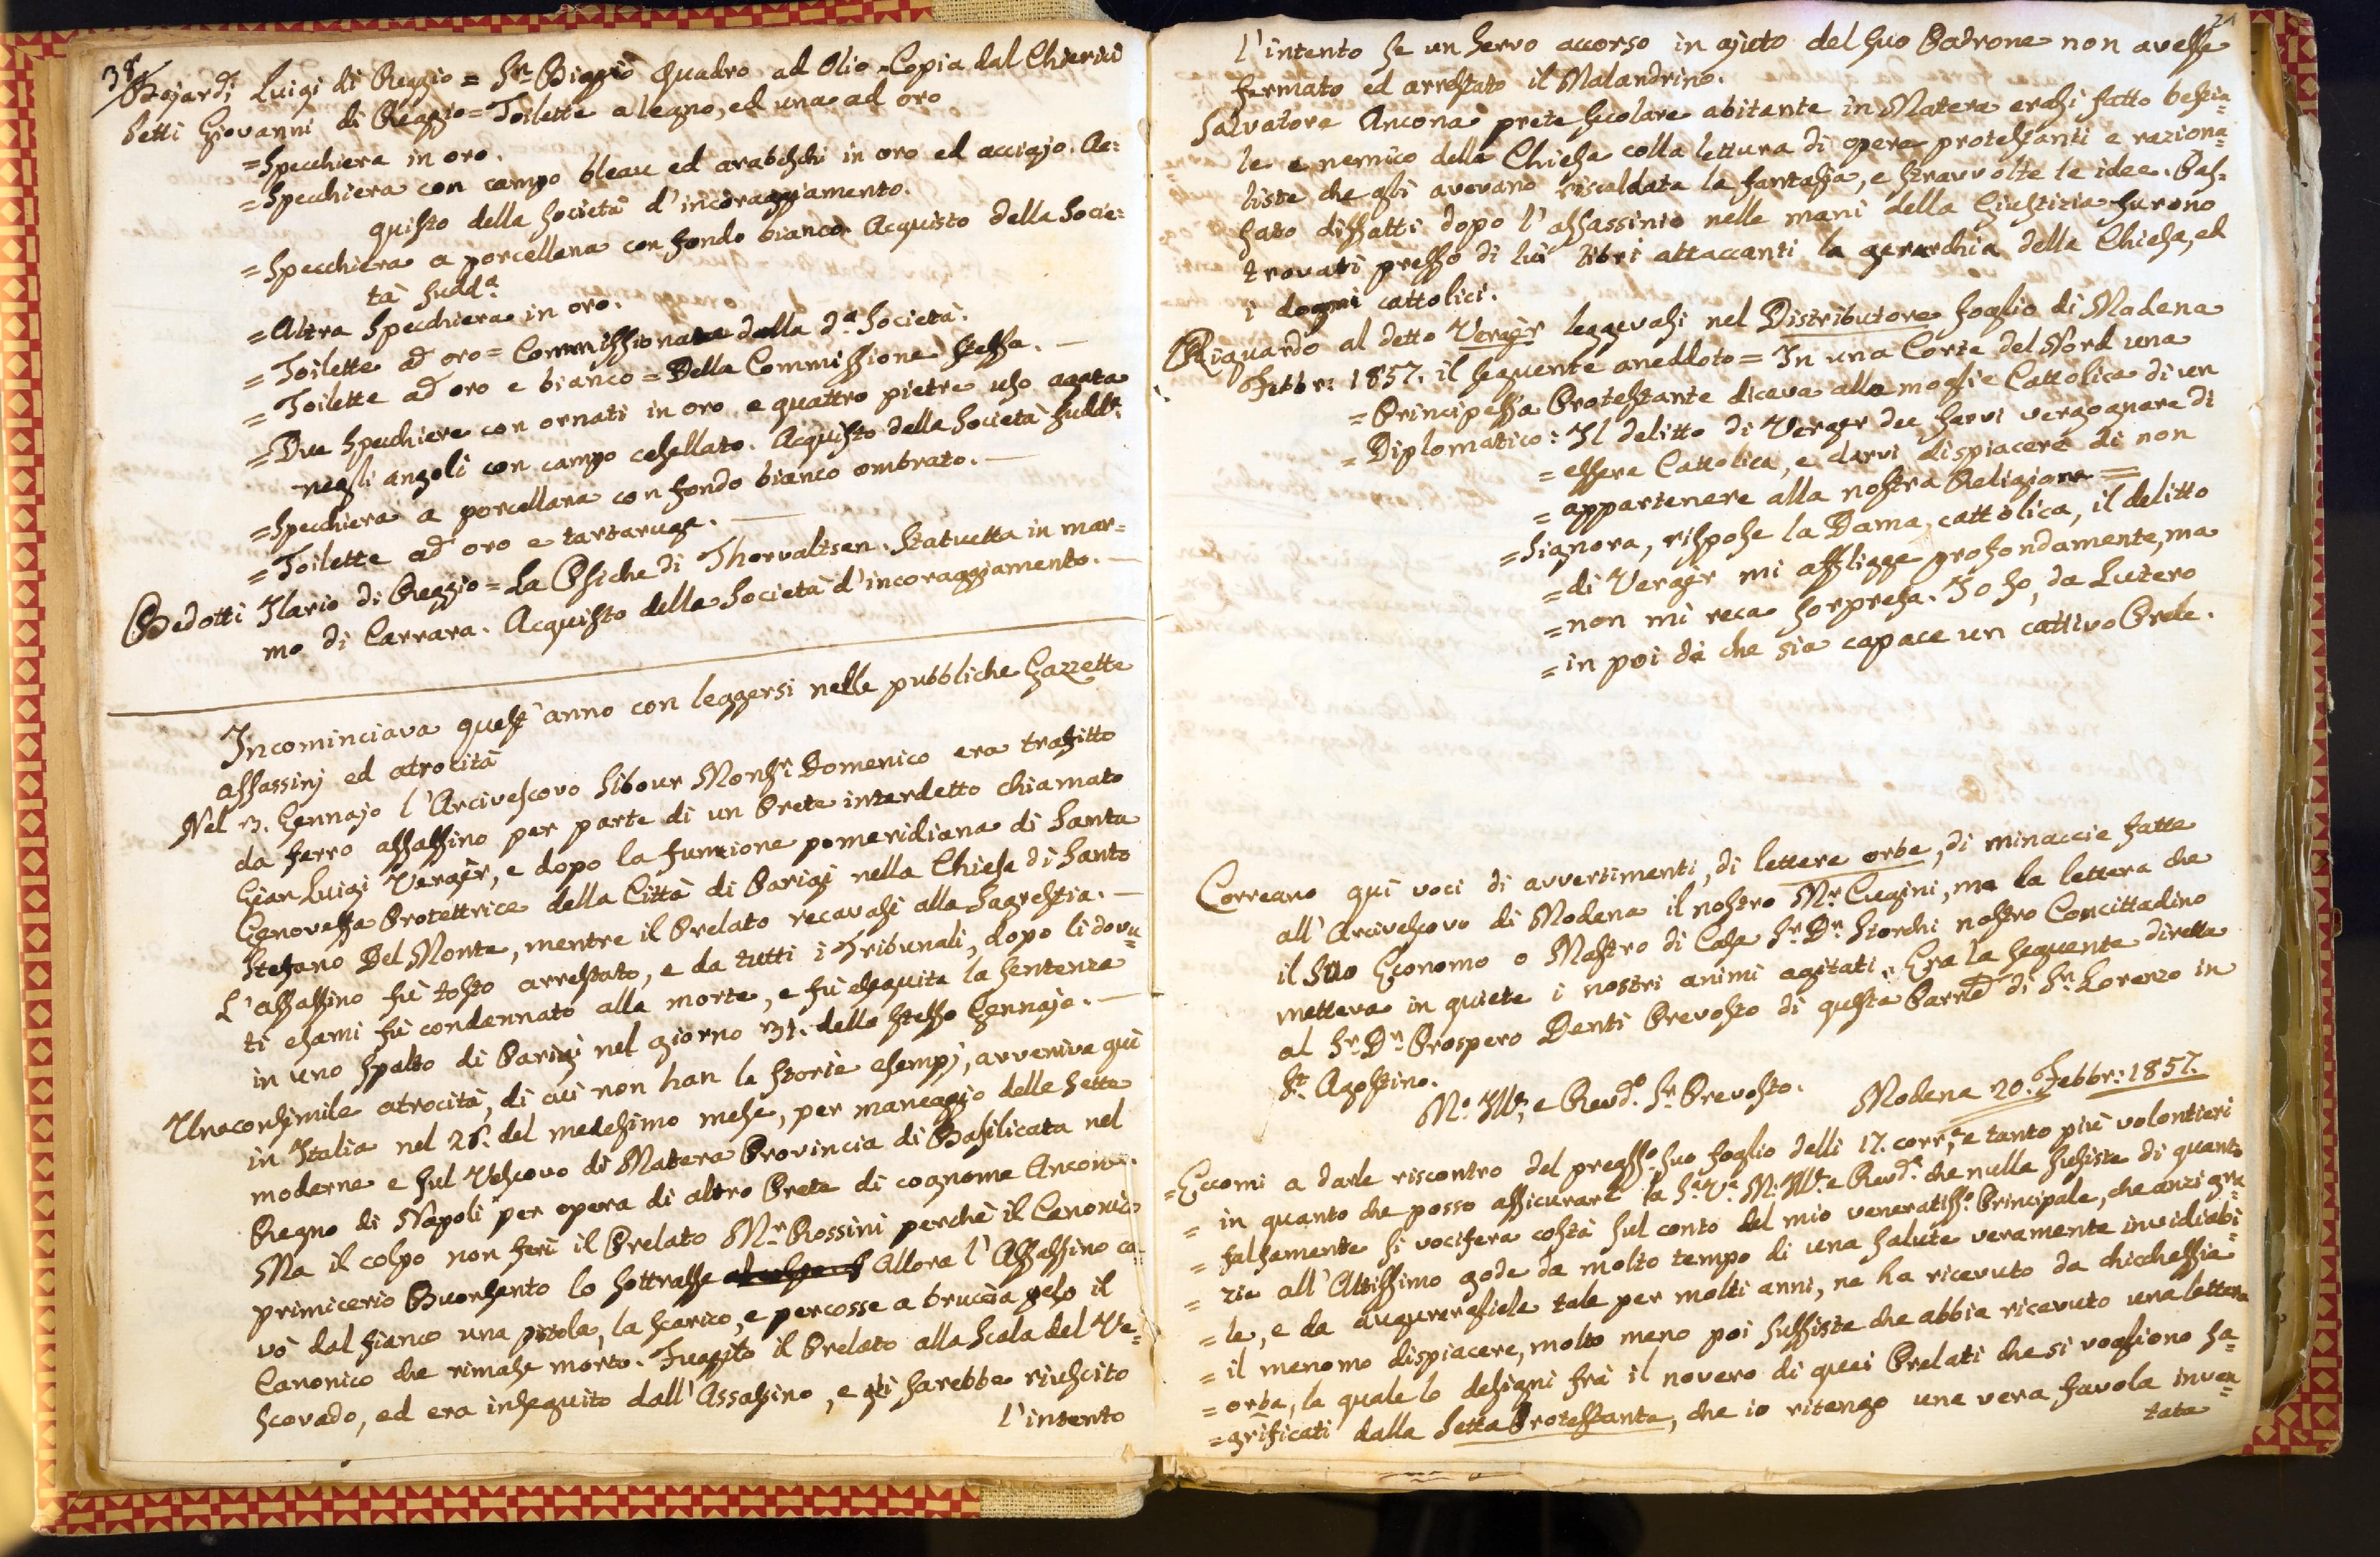 38
Bojardi Luigi di Reggio = Sn Biggio Quadro ad Olio Copia dal Chierici
Setti Giovanni di Reggio = Toilette a legno, ed una ad oro
= Specchiera in oro.
= Specchiera con campo bleau ed arabeschi in oro ed acciajo. Ac:
quisto della Società d'incoraggiamento.
= Specchiera a porcellana con fondo bianco. Acquisto della Socie:
tà sudda
= Altra Specchiera in oro.
= Toilette ad oro = Commissionata dalla da Società.
= Toilette ad oro e bianco = Della Commissione stessa. —
= Due Specchiere con ornati in oro e quattro pietre uso agata
negli angoli con campo cesellato. Acquisto della Società sudda
= Specchiera a porcellana con fondo bianco ombrato. —
= Toilette ad oro e tartaruga. —
Bedotti Ilario di Reggio = La Psiche di Thorvaltsen. Statuetta in mar=
mo di Carrara. Acquisto della Società d'incoraggiamento. —
Incominciava quest'anno con leggersi nelle pubbliche Gazzette
assassinj ed atrocità
Nel 3. Gennajo l'Arcivescovo Sibour Monsr Domenico era trafitto
da ferro assassino per parte di un Prete interdetto chiamato
Gian Luigi Vergèr, e dopo la funzione pomeridiana di Santa
Genoveffa Protettrice della Città di Parigi nella Chiesa di Santo
Stefano Del Monte, mentre il Prelato recavasi alla Sagrestia. —
L'assassino fù tosto arrestato, e da tutti i Tribunali, dopo li dovu=
ti esami fù condannato alla morte, e fù eseguita la sentenza
in uno spalto di Parigi nel giorno 31. dello stesso Gennajo. —
Una consimile atrocità, di cui non han le storie esempj, avveniva quì
in Italia nel 26. del medesimo mese, per maneggio delle Sette
moderne e sul Vescovo di Matera Provincia di Basilicata nel
Regno di Napoli per opera di altro Prete di cognome Ancona.
Ma il colpo non ferì il Prelato Mr Rossini perchè il Canonico
primicerio Buonsanto lo sottrasse Allora l'Assassino ca=
vò dal fianco una pistola, la scaricò, e percosse a brucia pelo il
Canonico che rimase morto. Fuggito il Prelato alla Scala del Ve=
scovado, ed era inseguito dall'Assassino, e gli sarebbe riuscito
l'intento
21
l'intento se un servo accorso in ajuto del suo Padrone non avesse
fermato ed arrestato il Malandrino.
Salvatore Ancona prete secolare abitante in Matera erasi fatto bestia=
le e nemico della Chiesa colla lettura di opere protestanti e raziona=
liste che gli avevano riscaldata la fantasia, e stravvolte le idee. Pas=
sato diffatti dopo l'assassinio nelle mani della Giustizia furono
trovati presso di lui libri attaccanti la gerarchia della Chiesa, ed
i dogmi cattolici.
Riguardo al detto Vergèr leggevasi nel Distributore foglio di Modena
Febbr: 1857. il seguente aneddoto = In una Corte del Nord una
= Principessa Protestante diceva alla moglie Cattolica di un
= Diplomatico: Il delitto di Verger dee farvi vergognare di
= essere Cattolica, e darvi dispiacere di non
= appartenere alla nostra Religione =
= Signora, rispose la Dama cattolica, il delitto
= di Vergèr mi affligge profondamente, ma
= non mi reca sorpresa. Io so, da Lutero
= in poi di che sia capace un cattivo Prete.
Correano quì voci di avvertimenti, di lettere orbe, di minaccie fatte
all'Arcivescovo di Modena il nostro Mr Cugini, ma la lettera che
il suo Economo o Mastro di Casa Sr Dn Storchi nostro Concittadino
metteva in quiete i nostri animi agitati. Era la seguente diretta
al Sr Dn Prospero Denti Prevosto di questa Parria di Sn Lorenzo in
St Agostino.
Mo Illre e Revdo Sr Prevosto. Modena 20. Febbr: 1857.
= Eccomi a darle riscontro del pregsso suo foglio delli 17. corre, e tanto più volontieri
= in quanto che posso assicurare la Sa Va M. Illre e Revda che nulla sussiste di quanto
= falsamente si vocifera costà sul conto del mio veneratisso Principale, che anzi gra=
= zie all'Altissimo gode da molto tempo di una salute veramente invidiabi=
= le, e da augurarsiele tale per molti anni, ne ha ricevuto da chicchessia
= il menomo dispiacere, molto meno poi sussiste che abbia ricevuto una lettera
= orba, la quale lo desegni frà il novero di quei Prelati che si vogliono sa=
= grificati dalla Setta Protestante, che io ritengo una vera favola inven=
tata